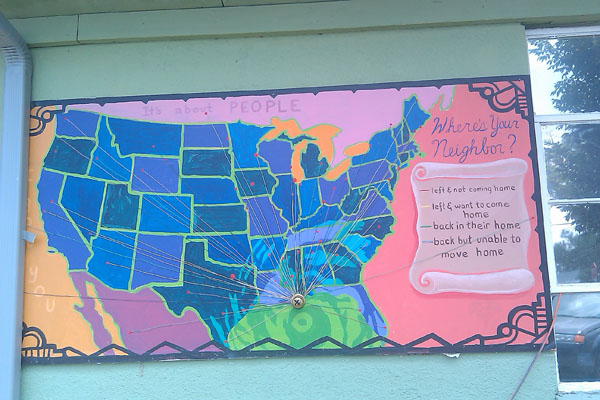 It's about PEOPLE
Where's Your
Neighbor?
left & not coming home
left & want to come
home
back in their home
back but unable to
move home
YOU